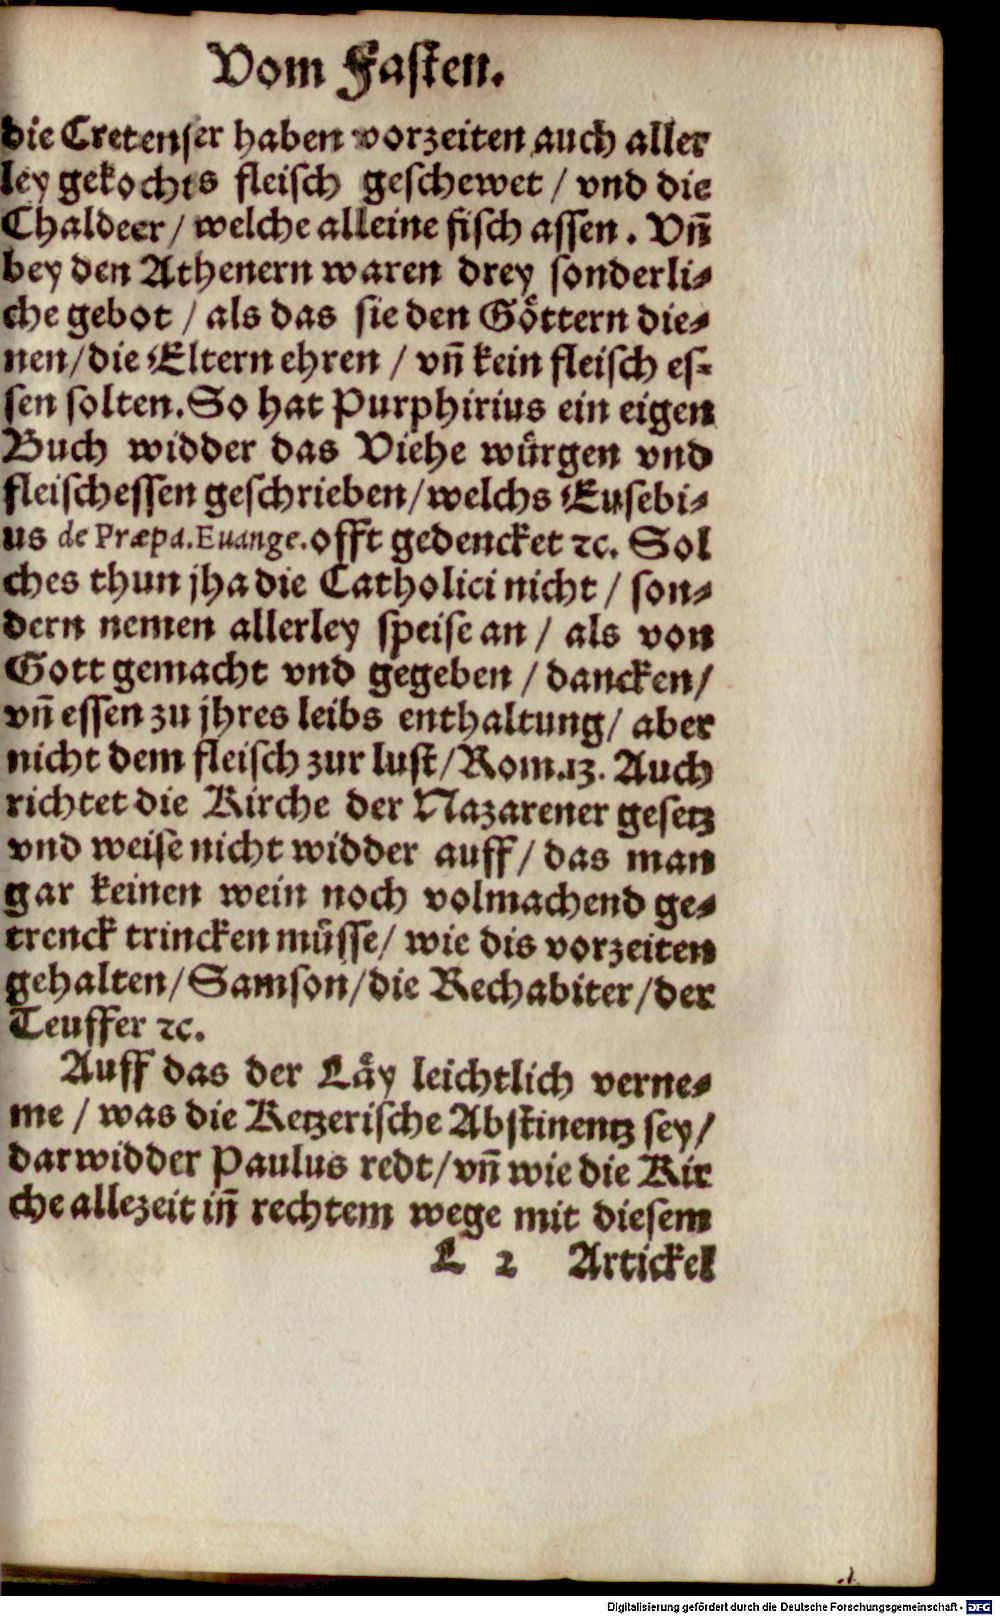 Vom Fasten.
die Cretenser haben vorzeiten auch aller
ley gekochts fleisch geschewet / vnd die
Chaldeer / welche alleine fisch assen. Vñ
bey den Athenern waren drey sonderli⸗
che gebot / als das sie den Göttern die⸗
nen / die Eltern ehren / vñ kein fleisch es⸗
sen solten. So hat Purphirius ein eigen
Buch widder das Viehe würgen vnd
fleischessen geschrieben / welchs Eusebi⸗
us de Præpa. Euange. offt gedencket ꝛc. Sol
ches thun jha die Catholici nicht / son⸗
dern nemen allerley speise an / als von
Gott gemacht vnd gegeben / dancken /
vñ essen zu jhres leibs enthaltung / aber
nicht dem fleisch zur lust / Rom. 13. Auch
richtet die Kirche der Nazarener gesetz
vnd weise nicht widder auff / das man
gar keinen wein noch volmachend ge⸗
trenck trincken müsse / wie dis vorzeiten
gehalten / Samson / die Rechabiter / der
Teuffer ꝛc.
Auff das der Läy leichtlich verne⸗
me / was die Ketzerische Abstinentz sey /
darwidder Paulus redt / vñ wie die Kir
che allezeit iñ rechtem wege mit diesem
L 2 Artickel
Digitalisierung gefördert durch die Deutsche Forschungsgemeinschaft - DFG